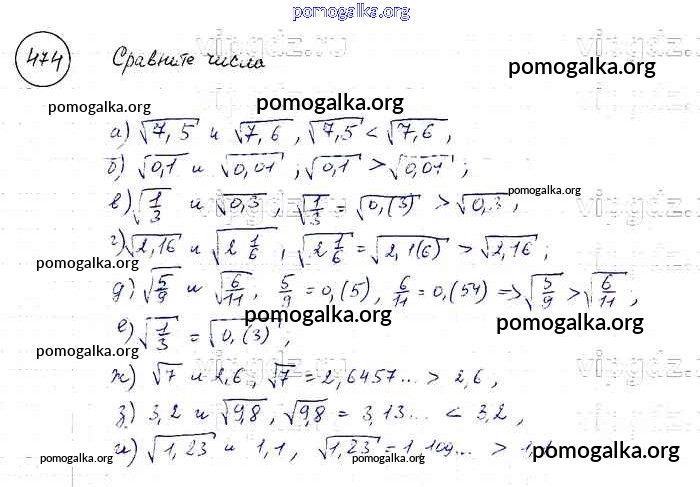 pomogalka.org
474 Сравните числа
vipgdz.ru
pomogalka.org
pomogalka.org pomogalka.org
а) √7,5 и √7,6, √7,5 < √7,6,
б) √0,1 и √0,01, √0,1 > √0,01;
pomogalka.org
в) √1/3 и √0,3, √1/3 = √0,(3) > √0,3,
vipgdz.ru
г) √2,16 и √2 1/6, √2 1/6 = √2,1(6) > √2,16;
pomogalka.org
д) √5/9 и √6/11, 5/9 = 0,(5), 6/11 = 0,(54) => √5/9 > √6/11;
pomogalka.org pomogalka.org
е) √1/3 = √0,(3),
pomogalka.org
vipgdz.ru
ж) √7 и 2,6, √7 = 2,6457... > 2,6,
з) 3,2 и √9,8, √9,8 = 3,13... < 3,2,
и) √1,23 и 1,1, √1,23 = 1,109... > 1,1
pomogalka.org pomogalka.org pomogalka.org